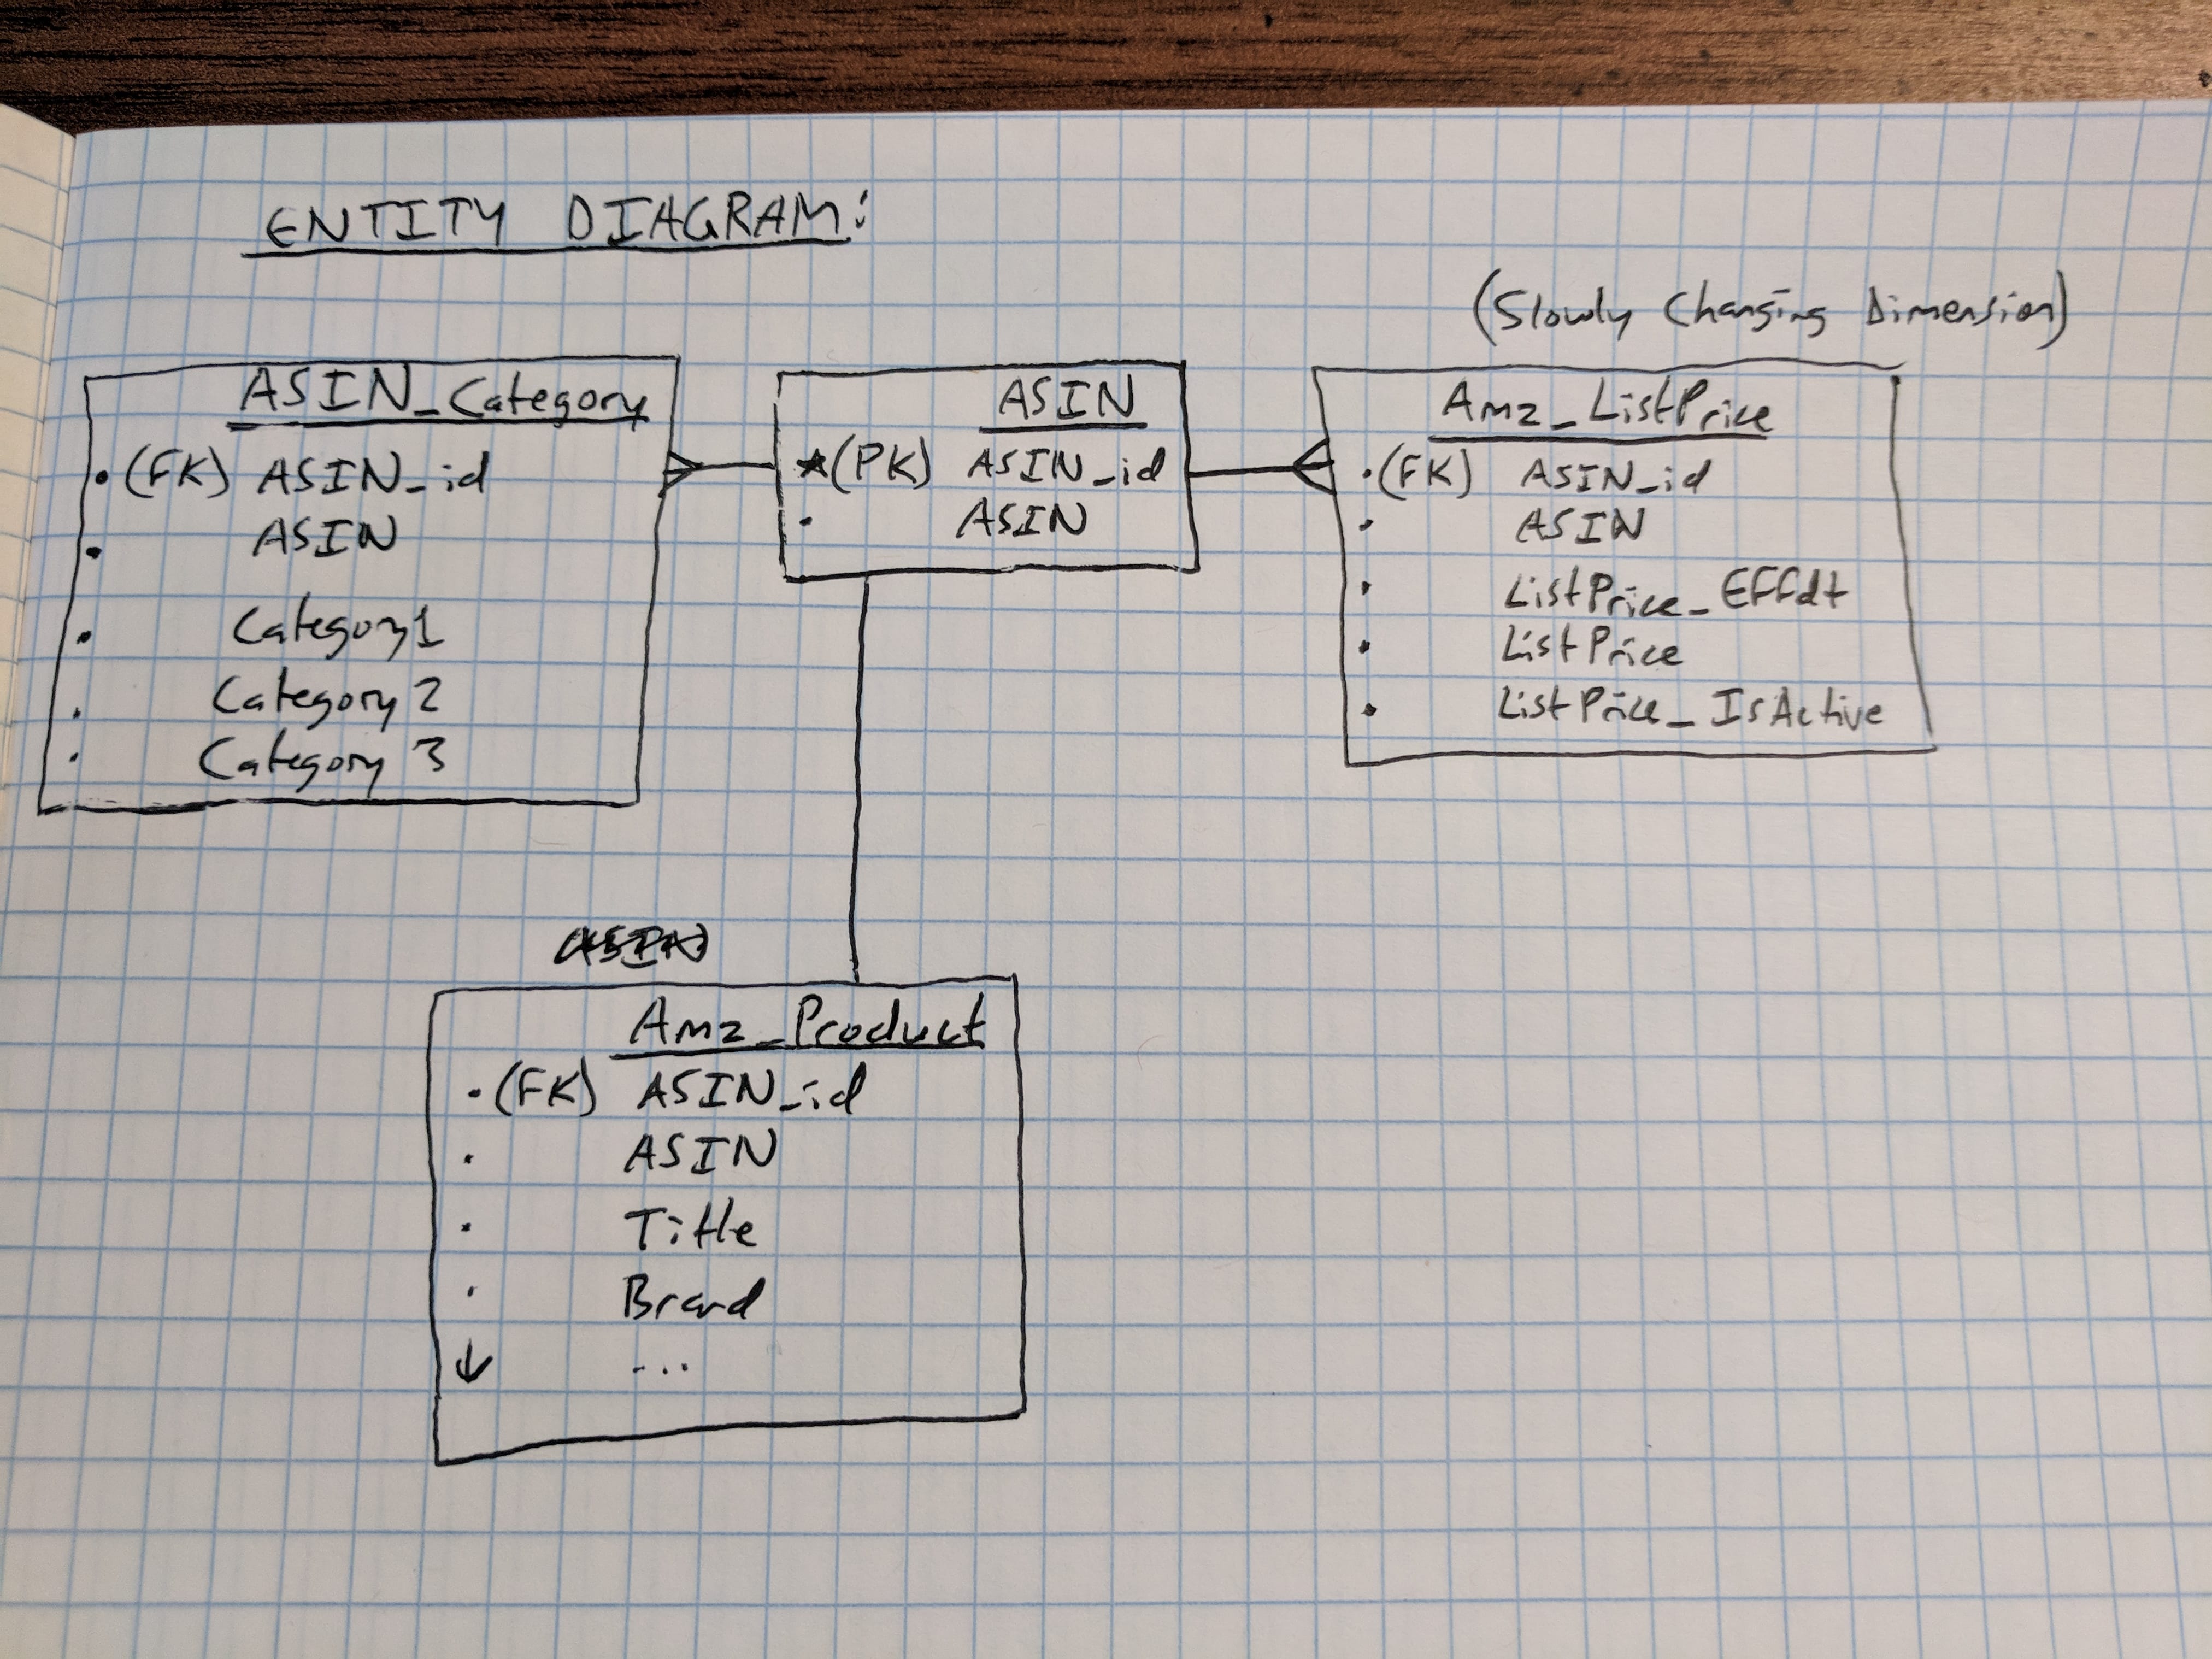 ENTITY DIAGRAM:
(Slowly Changing Dimension)
ASIN_Category
• (FK) ASIN_id
• ASIN
• Category1
• Category 2
• Category 3
ASIN
★(PK) ASIN_id
• ASIN
Amz_ListPrice
•(FK) ASIN_id
• ASIN
• ListPrice_Effdt
• ListPrice
• ListPrice_IsActive
ASIN
Amz_Product
•(FK) ASIN_id
• ASIN
• Title
• Brand
↓ ...